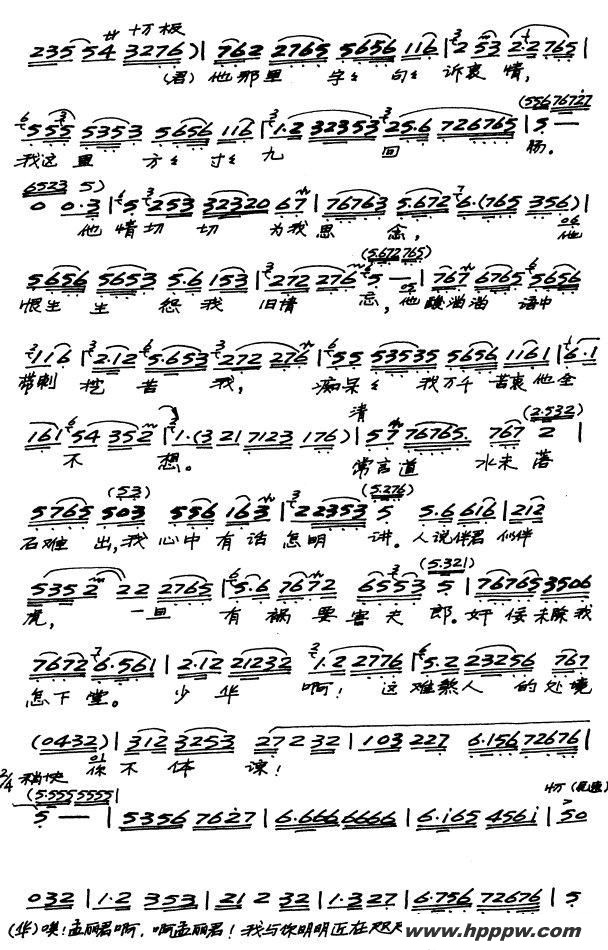 サ 十万板
235 54 3276) | 762 2765 5656 116 | 2 53 2·2 765 |
(君) 他那里 字字 句句 诉衷情,
5 5 5 5353 5656 116 | 1·2 32353 25·6 726765 | 5 —
(5567672̇7̇
我这里 方方 寸寸 九 回 肠。
6523 5)
0 0·3 | 5 253 32320 67 | 76763 5·672 6·(765 356) |
他 情切 切 为我思 念, 他
5656 5653 5·6 153 | 272 276 5 — | 767 6765 5656
(5·672765)
恨生 生 怨我 旧情 忘, 他酸溜溜 语中
116 | 2·12 5·653 272 276 | 55 53535 5656 1161 | 6·1
带刺 挖苦 我, 痴呆呆 我万千苦衷他全
161 54 352 | 1·(3 21 7123 176) | 57 76765 767 2 |
(2·532)
不 想。 清
常言道 水未落
5765 503 556 163 | 2 22353 5 5·6 616 | 212
(53) (5·276)
石难 出,我 心中 有话 怎明 讲。人说伴君 似伴
5352 22 2765 | 5·6 7672 6553 5 | 767653506
(5·321)
虎, 一旦 有祸 要害夫 郎。奸佞未除我
7672 6·561 | 2·12 21232 1·2 2776 | 5·2 23256 767
怎下堂。 少华 啊! 这难熬人 的处境
(0432) | 312 3253 272 32 | 103 227 6·156 72676 |
你 不 体 谅!
2/4 稍快
(5·555 5555 |
5 — | 5356 7627 | 6·666 6666 | 6·165 4561 | 50
切 (见速)
032 | 1·2 353 | 21 2 32 | 1·327 | 6·756 72676 | 5
(华) 噗!孟丽君啊,啊孟丽君!我与你明明近在咫尺
www.hpppw.com